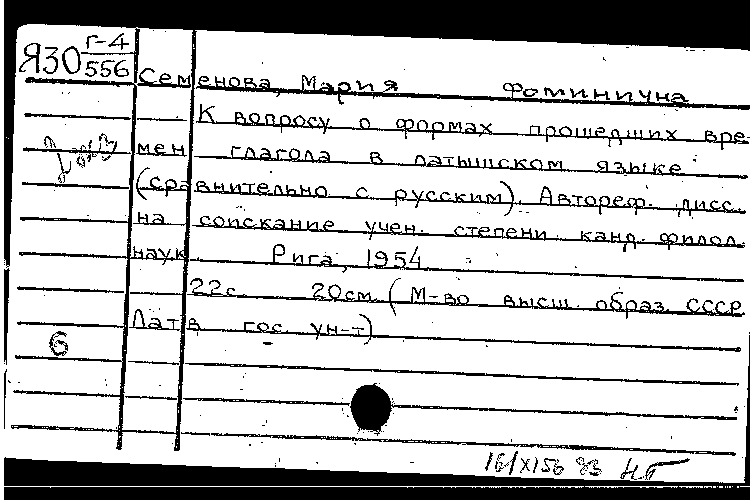 Я30 г-4
556
Семенова, Мария Фоминична
К вопросу о формах прошедших вре-
мен глагола в латышском языке
(сравнительно с русским). Автореф. дисс.
на соискание учен. степени канд. филол.
наук. Рига, 1954
22с. 20см. (М-во высш. образ. СССР.
Латв. гос. ун-т)
6
16/X156